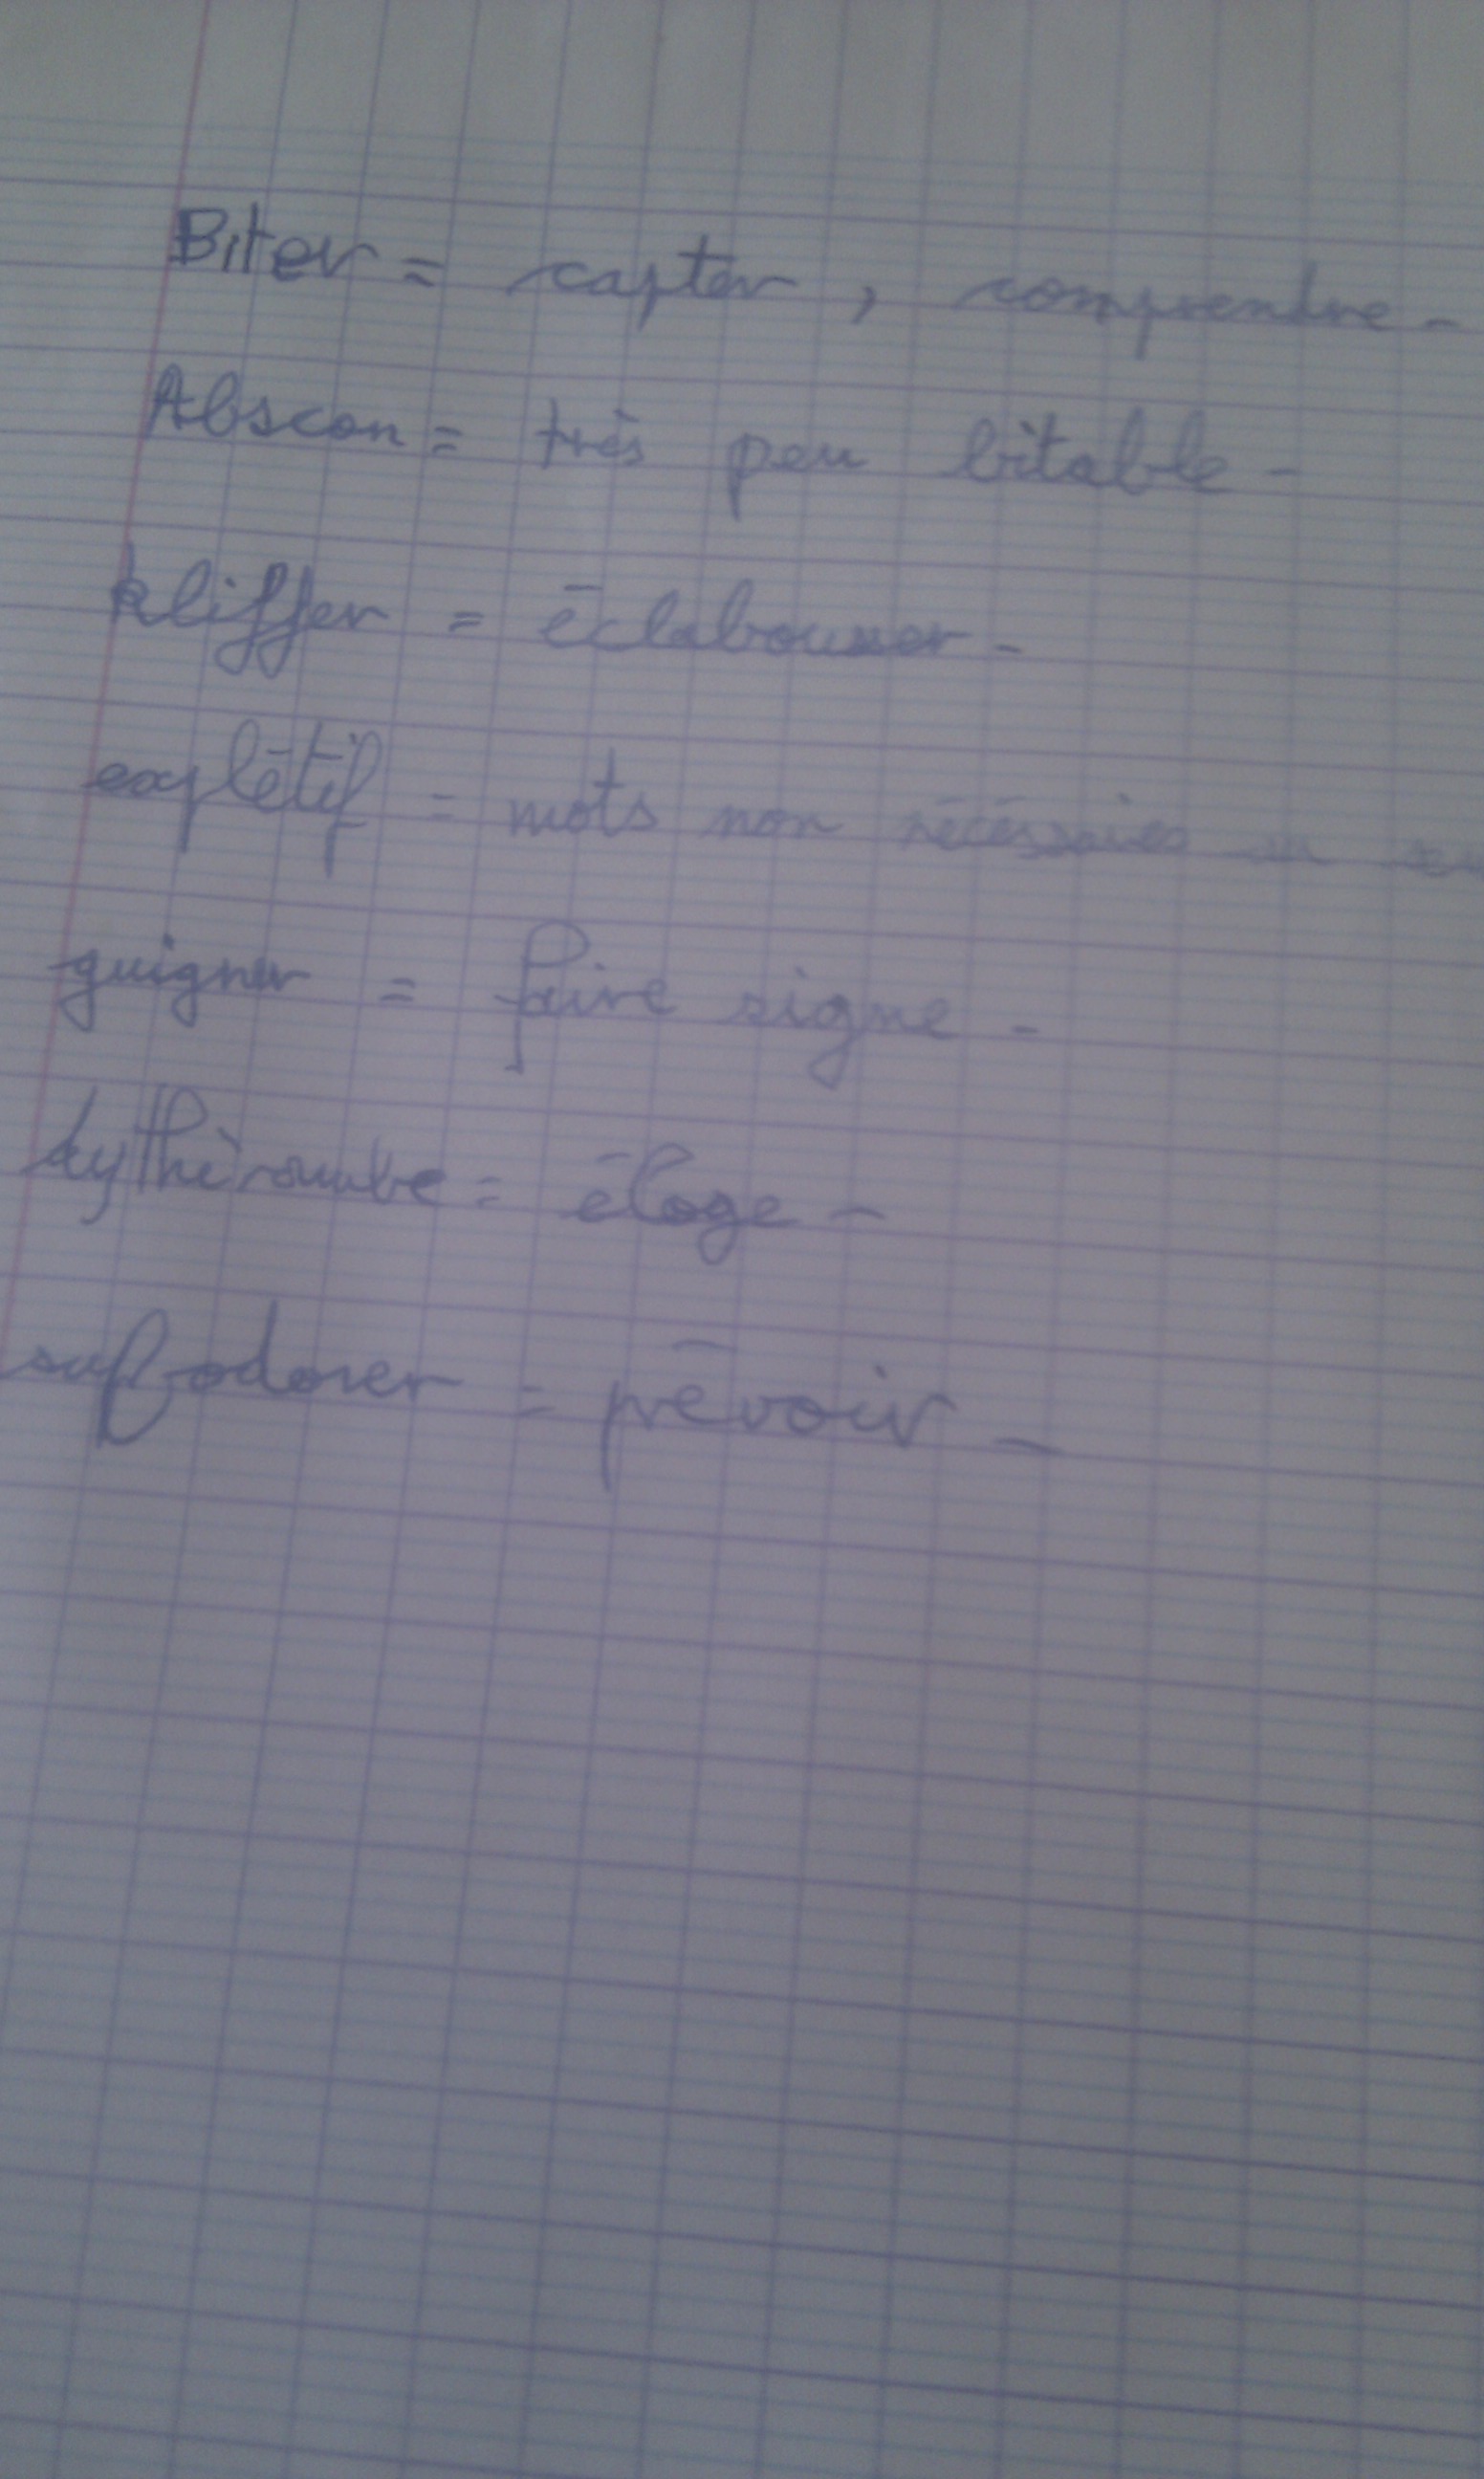 Biter = capter, comprendre -
Abscon = très peu bitable -
kliffer = éclabousser -
explétif = mots non nécéssaires
guigner = faire signe -
dythirambe = éloge -
subodorer = prévoir -